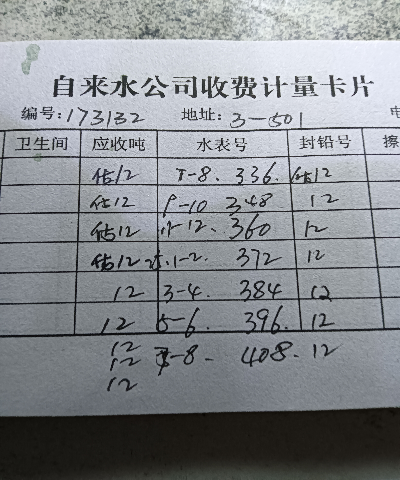 自来水公司收费计量卡片
编号:173132 地址:3-501 电
卫生间 应收吨 水表号 封铅号 擦
估12 7-8. 336. 估12
估12 9-10 348 12
估12 11-12. 360 12
估12 25.1-2. 372 12
12 3-4. 384 12
12 5-6. 396. 12
12
12 7-8. 408. 12
12